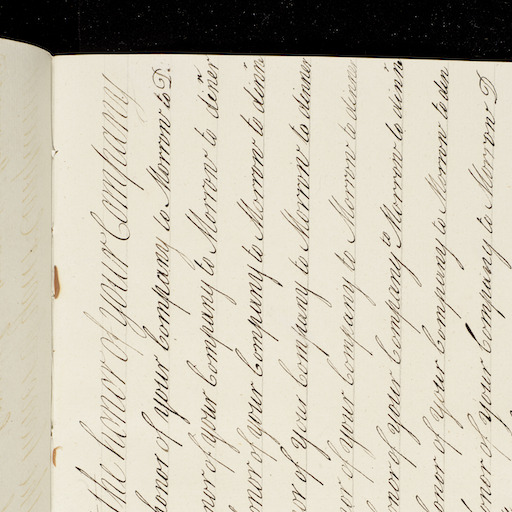 the honor of your Company
honor of your Company to Morrow to D.
nor of your Company to Morrow to diner
onor of your Company to Morrow to dinn
or of your Company to Morrow to dinner
ur of your Company to Morrow to dinner
nor of your Company to to Morrow to dinn
onor of your Company to Morrow to din
onor of your Company to Morrow D